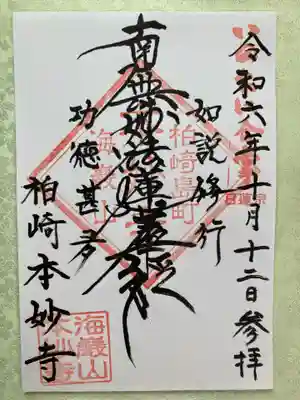 令和六年十一月十二日参拝
如説修行
南無妙法蓮華経
功徳甚多
柏崎本妙寺
柏崎島町
海巌山
日蓮宗
海巌山
本妙寺